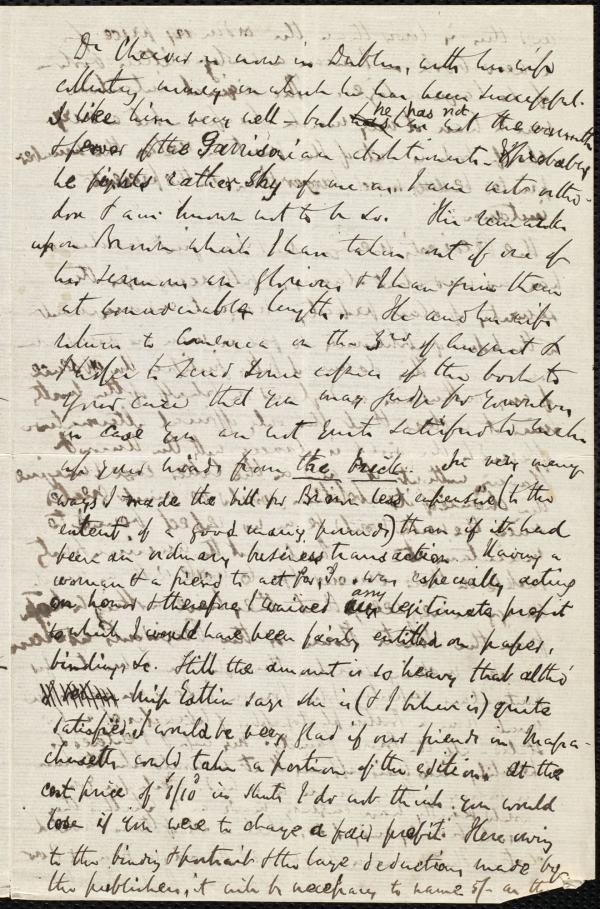 Dr Cheever is now in Dublin, with his wife
collecting money in which he has been successful.
I like him very well – but he has not the warmth
& fervor of the Garrisonian abolitionists. Probably
he fights rather shy of me as I am not ortho-
dox & am known not to be so. His remarks
upon Brown which I have taken out of one of
his sermons are glorious & I have given them
at considerable length. He and his wife
return to America on the 3rd of August &
I hope to send some copies of the book to
your care that you may judge for yourselves
in case you are not quite satisfied to make
up your minds from the brick. In very many
ways I made the bill for Brown less expensive (to the
extent of a good many pounds) than if it had
been an ordinary business transaction. Having a
woman & a friend to act for, I was especially acting
on honor & therefore I waived any legitimate profit
to which I would have been fairly entitled on paper,
binding &c. Still the amount is so heavy that altho'
Miss Estlin says she is (& I believe is) quite
satisfied it would be very glad if our friends in Massa-
chusetts could take a portion of the edition. At the
cost price of 1/10 in sheets I do not think you would
lose if you were to charge a fair profit. Here owing
to the binding & portrait & the large deductions made by
the publishers, it will be necessary to name 5/- as the